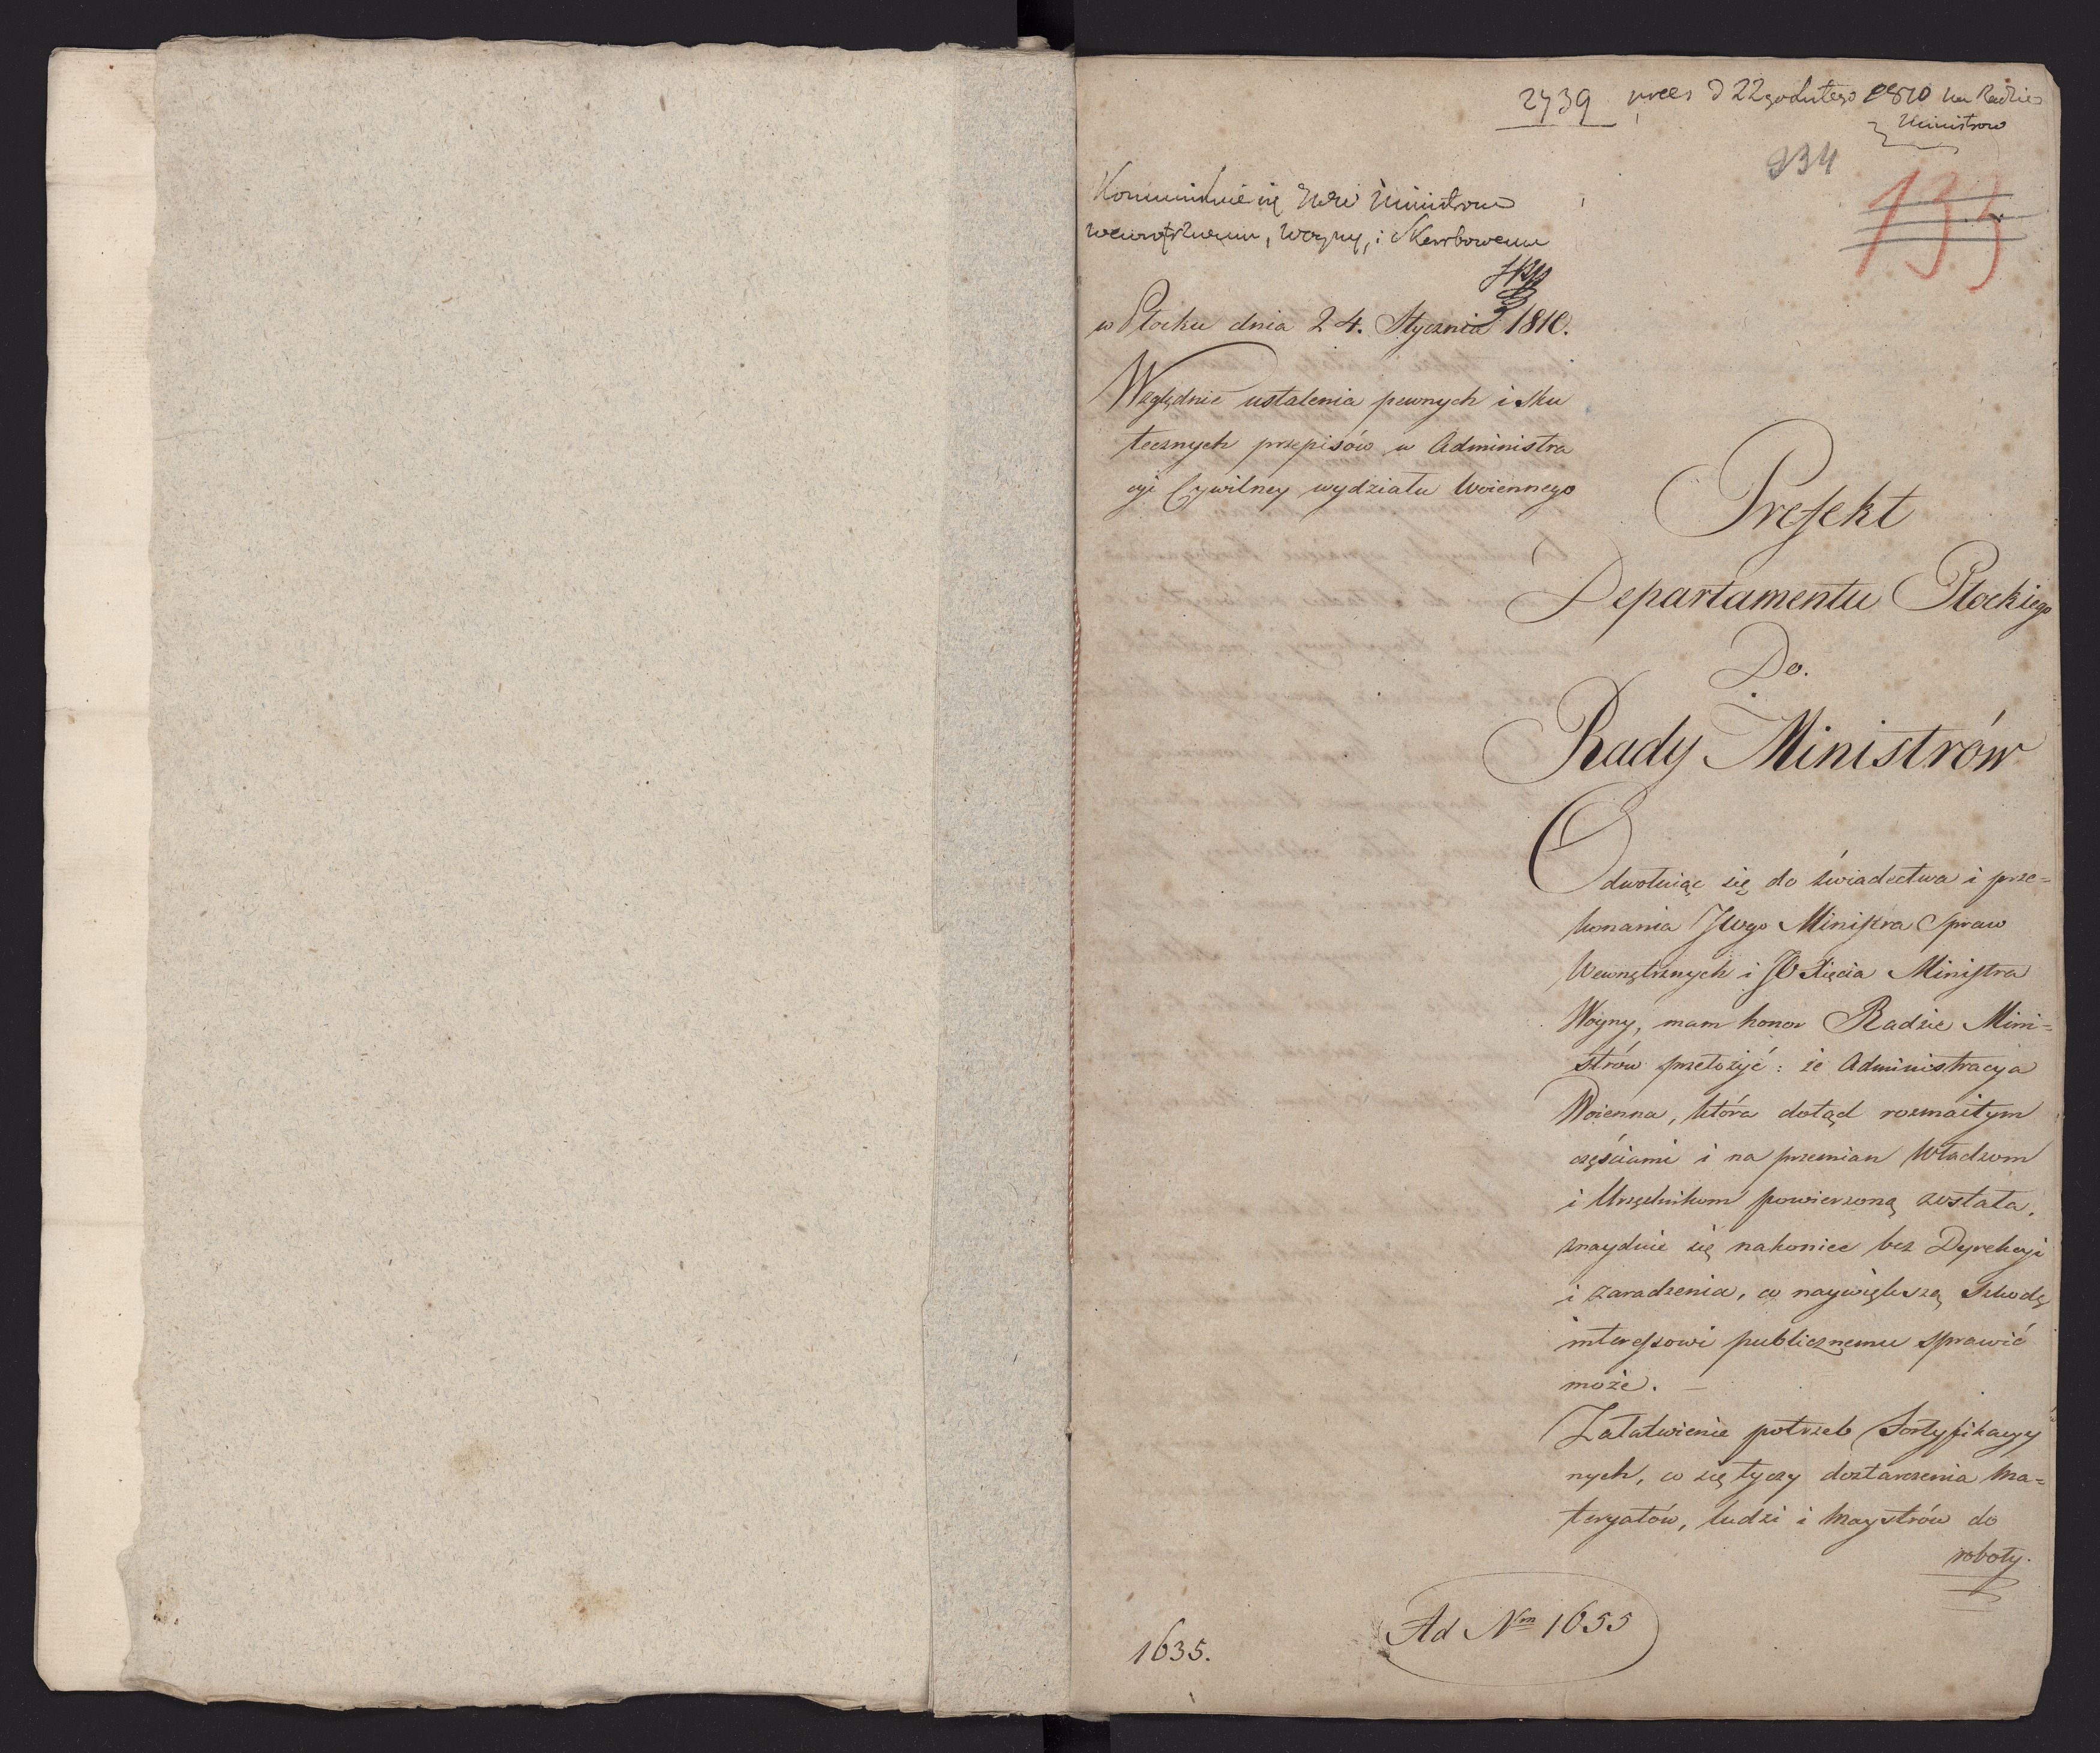 2739 prces d 22go lutego 1810 na Radzie
Ministrow
934
133
Kommunikuie się Ministrom
wewnętrznemu, woyny, i Skarbowemu
w Płocku dnia 24. Stycznia 1810.
Względnie ustalenia pewnych i sku
tecznych przepisów w Administra
cyi Cywilney wydziału Woiennego
Prefekt
Departamentu Płockiego
Do.
Rady Ministrów
Odwołuiąc się do świadectwa i prze=
konania JWgo Ministra Spraw
Wewnętrznych i JO Xięcia Ministra
Woyny, mam honor Radzie Mini=
strów przełożyć: że Administracya
Woienna, która dotąd rozmaitym
częściami i na przemian Władzom
i Urzędnikom powierzoną została,
znayduie się nakoniec bez Dyrekcyi
i zaradzenia, co naywiększą szkodę
interessowi publicznemu sprawić
może. —
Załatwienie potrzeb Fortyfikacyy
nych, co się tyczy dostarczenia ma=
teryałów, ludzi i maystrów do
roboty.
Ad Nm 1655
1635.